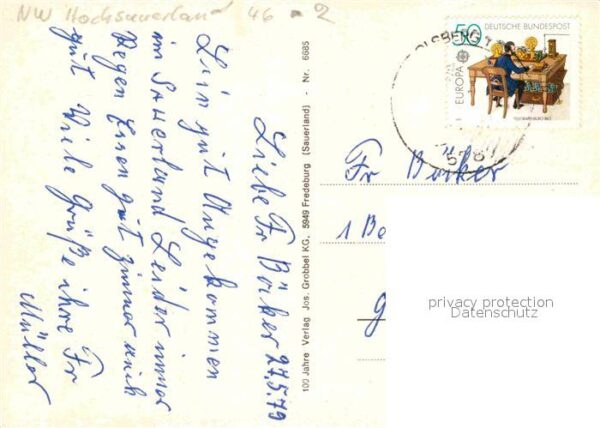 NW Hochsauerland 46 - 2
Liebe Fr Böker 27.5.79
Bin gut Angekommen
im Sauerland Leider immer
Regen Essen gut Zimmer auch
gut Viele Grüße ihre Fr
Müller
100 Jahre Verlag Jos. Grobbel KG, 5949 Fredeburg (Sauerland) - Nr. 6685
OLSBERG 1
578
50 DEUTSCHE BUNDESPOST
EUROPA
Fr Böker
1 Be
privacy protection
Datenschutz